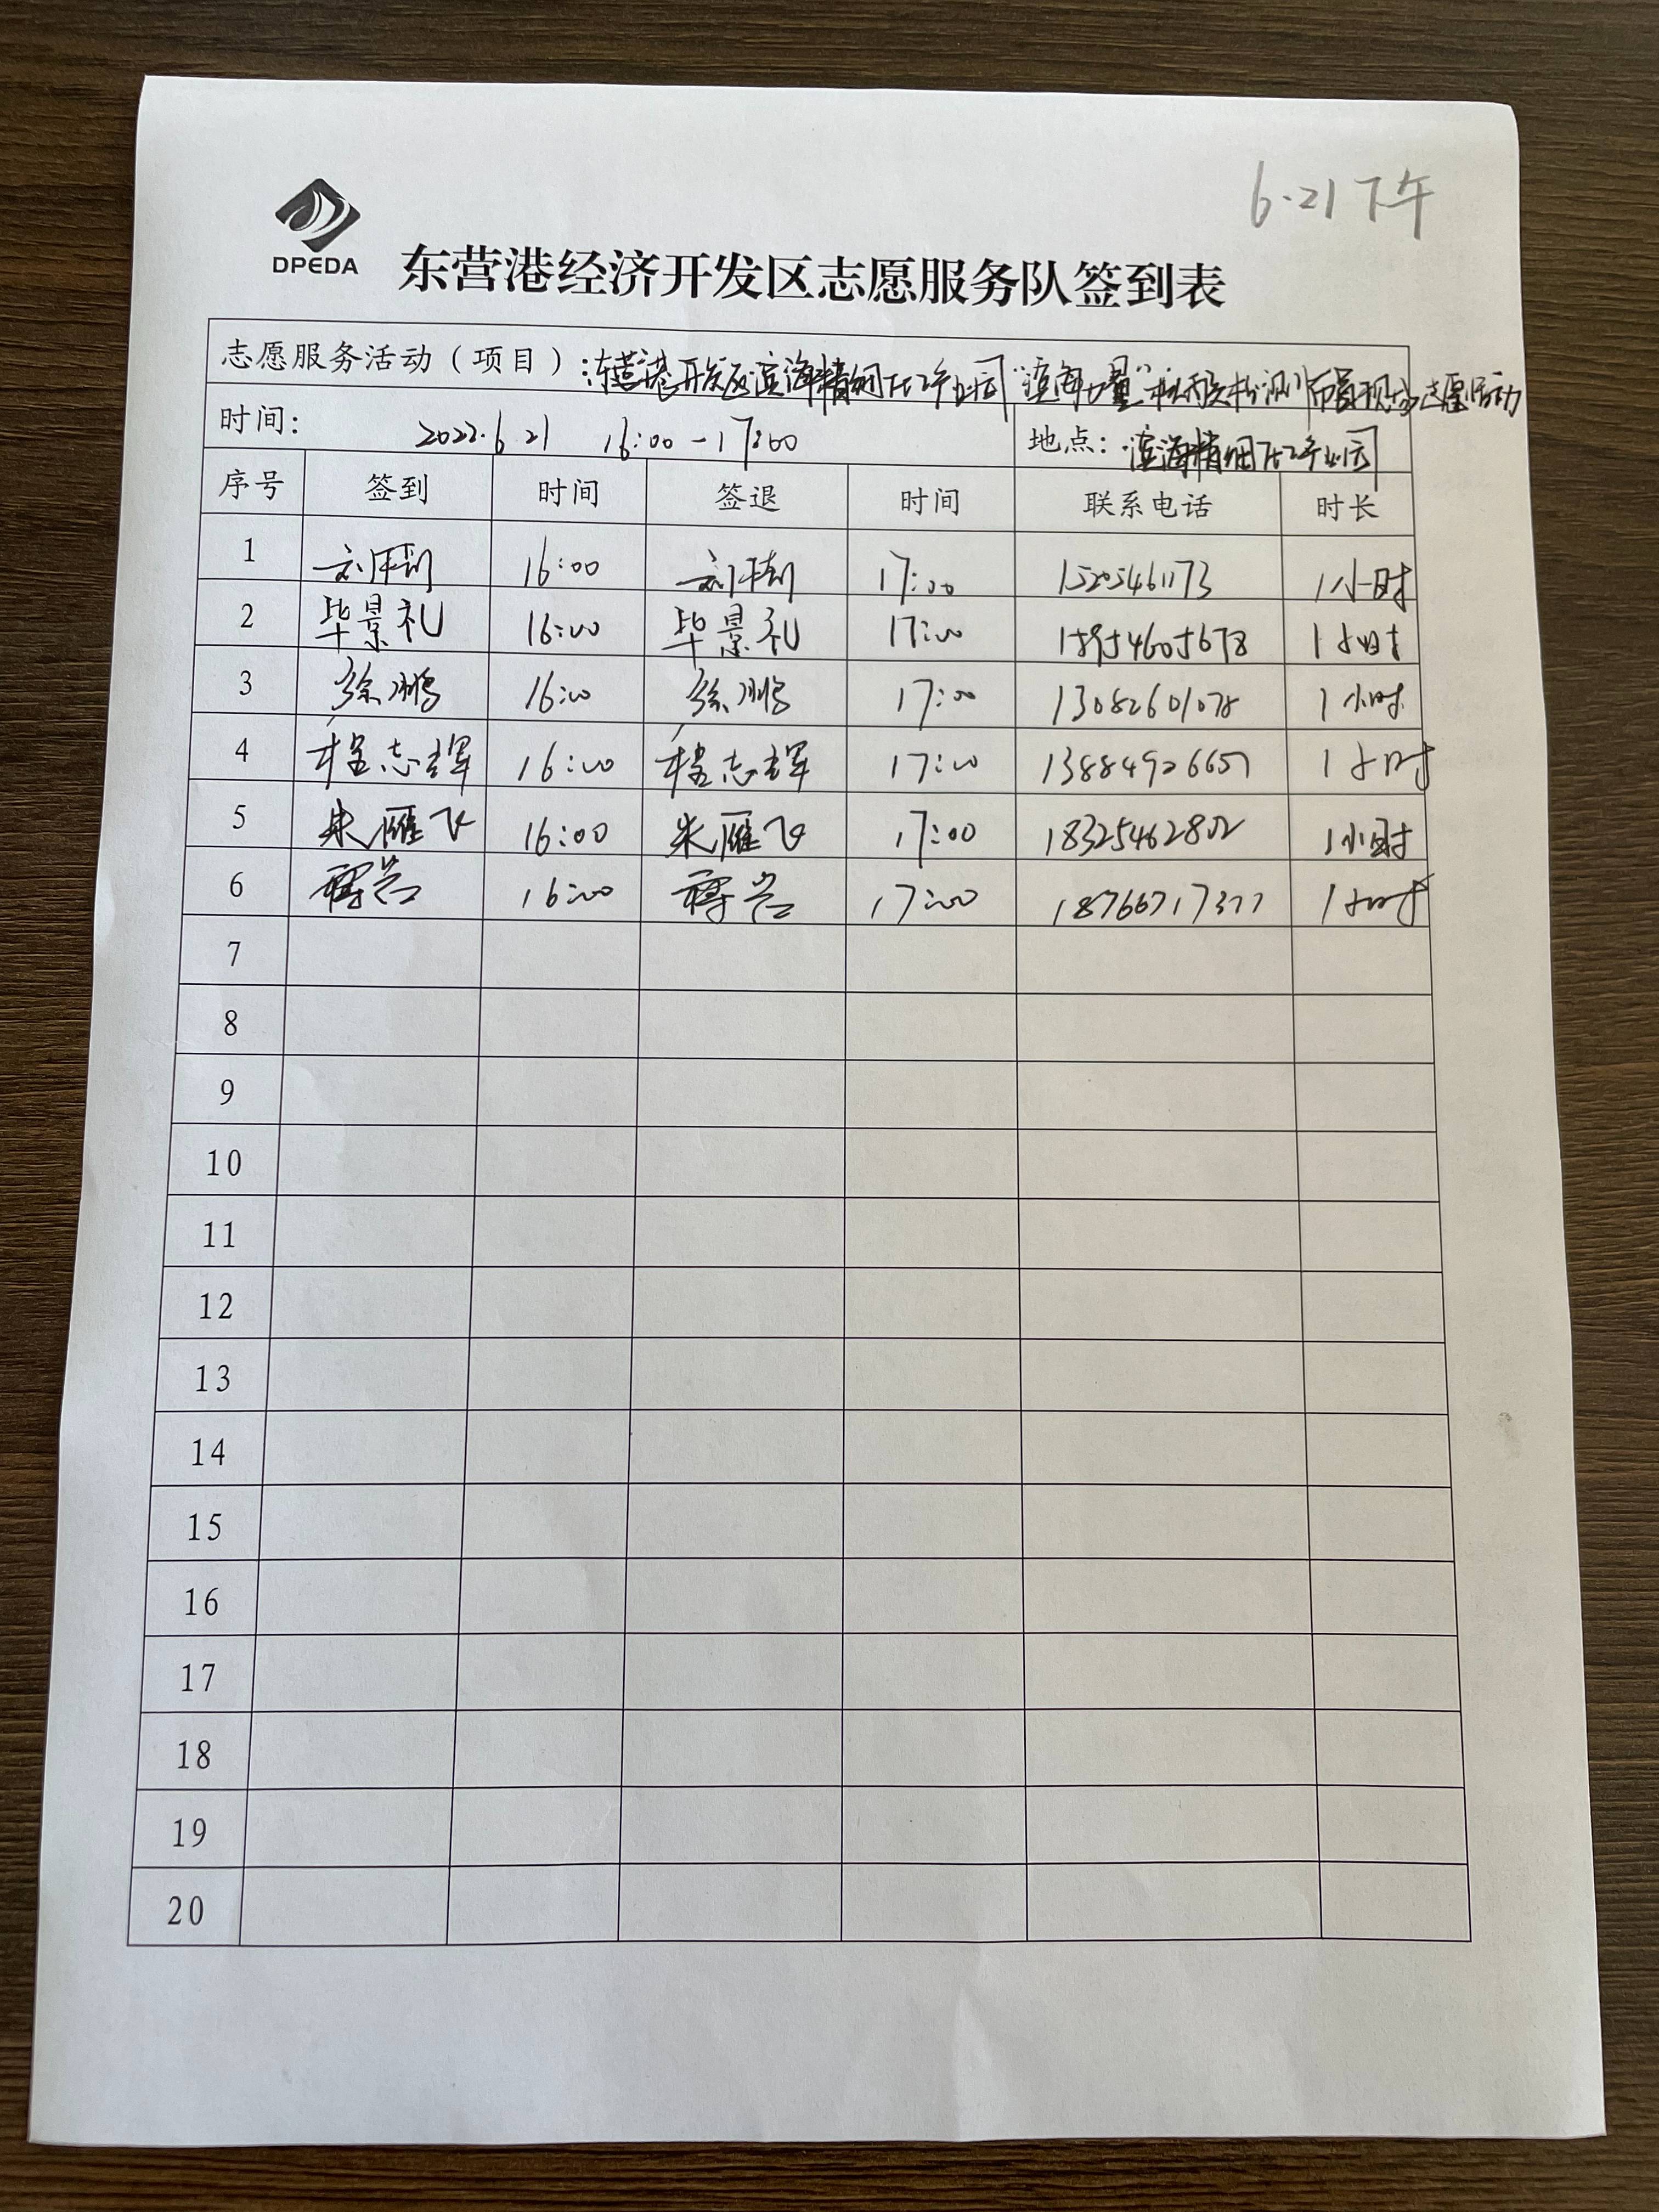 6.21下午
DPEDA
东营港经济开发区志愿服务队签到表
志愿服务活动（项目）：东营港开发区滨海精细化工产业园"滨海力量"核酸检测布置现场志愿活动
时间： 2022.6.21 16:00-17:00 地点：滨海精细化工产业园
序号 签到 时间 签退 时间 联系电话 时长
1 16:00 17:00 15205461173 1小时
2 毕景礼 16:00 毕景礼 17:00 18954605678 1小时
3 徐鹏 16:00 徐鹏 17:00 13082601078 1小时
4 程志辉 16:00 程志辉 17:00 13884926657 1小时
5 朱雁飞 16:00 朱雁飞 17:00 18325462802 1小时
6 16:00 17:00 18766717377 1小时
7
8
9
10
11
12
13
14
15
16
17
18
19
20